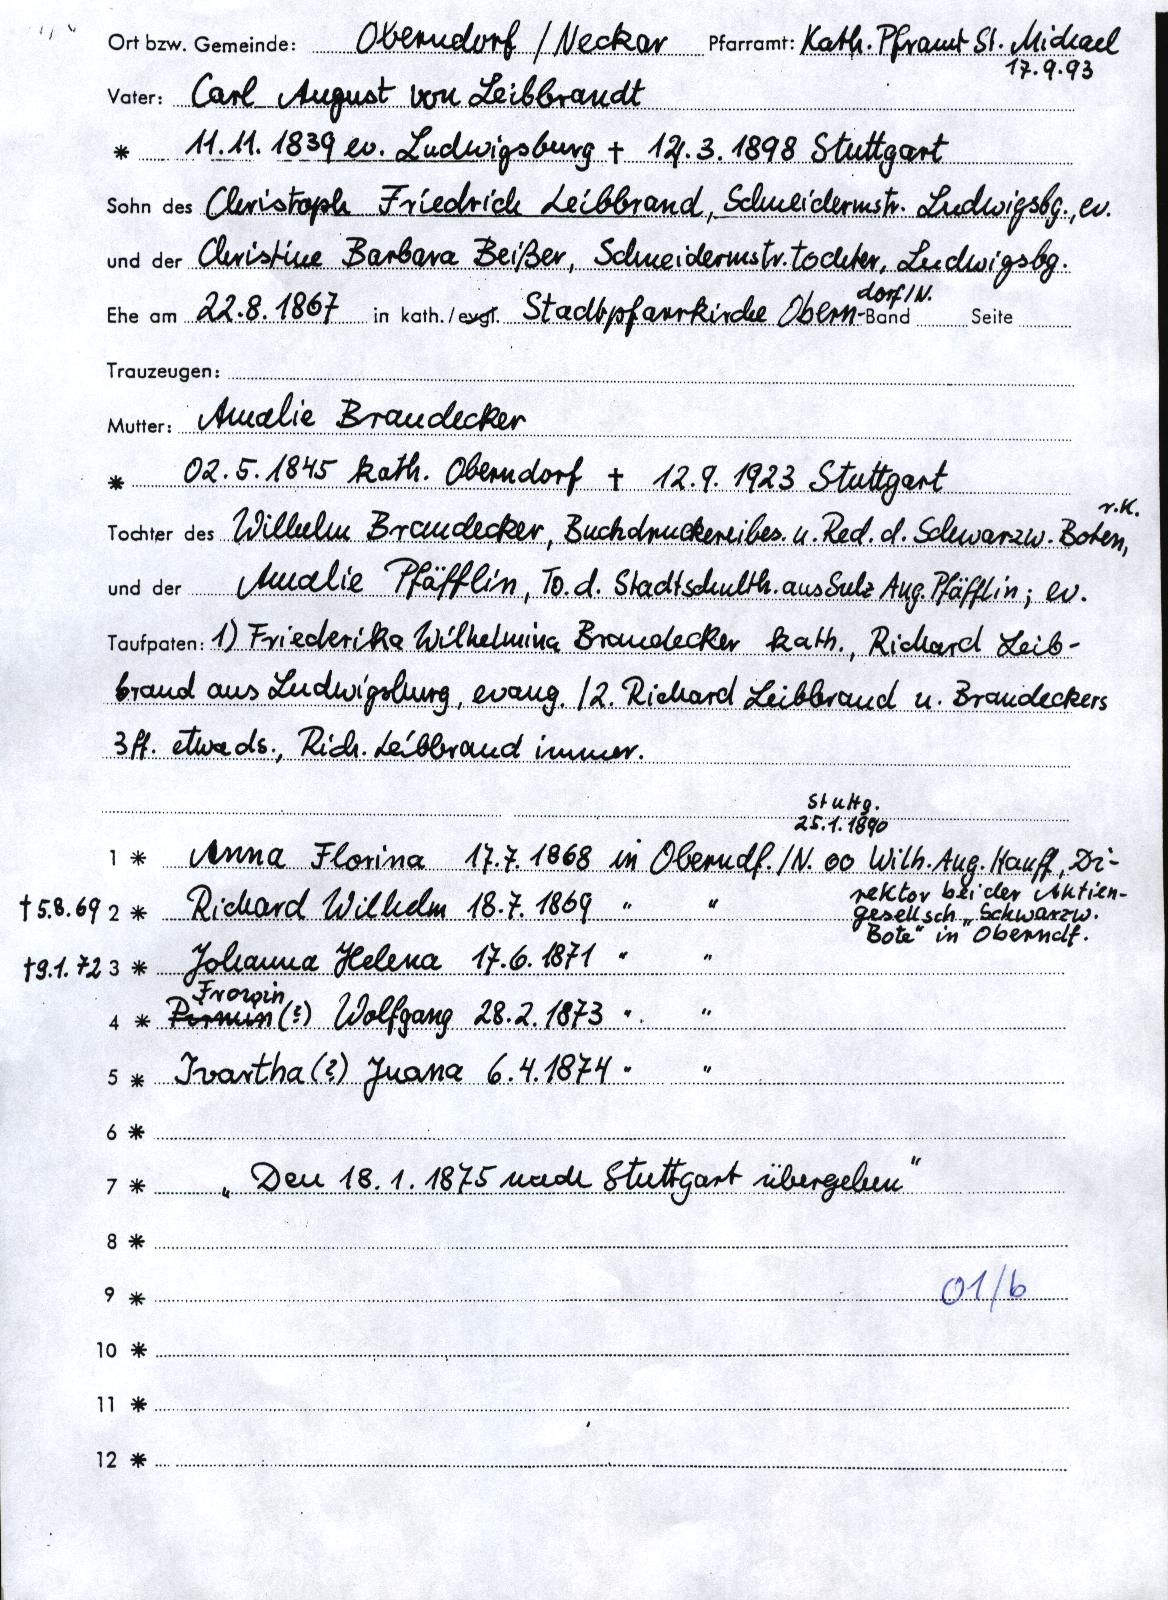 Ort bzw. Gemeinde: Oberndorf / Neckar Pfarramt: Kath. Pframt St. Michael
17.9.93
Vater: Carl August von Leibbrandt
* 11.11.1839 ev. Ludwigsburg † 12.3.1898 Stuttgart
Sohn des Christoph Friedrich Leibbrand, Schneidermstr. Ludwigsbg., ev.
und der Christine Barbara Beißer, Schneidermstr.tochter, Ludwigsbg.
Ehe am 22.8.1867 in kath./evgl. Stadtpfarrkirche Obern-dorf/N. Band Seite
Trauzeugen:
Mutter: Amalie Brandecker
* 02.5.1845 kath. Oberndorf † 12.9.1923 Stuttgart
r.K.
Tochter des Wilhelm Brandecker, Buchdruckereibes. u. Red. d. Schwarzw. Boten,
und der Amalie Pfäfflin, To. d. Stadtschulth. aus Sulz Aug. Pfäfflin; ev.
Taufpaten: 1) Friederika Wilhelmina Brandecker kath., Richard Leib-
brand aus Ludwigsburg, evang. / 2. Richard Leibbrand u. Brandeckers
3ff. etwa ds., Rich. Leibbrand immer.
Stuttg.
25.1.1890
1 * Anna Florina 17.7.1868 in Oberndf./N. oo Wilh. Aug. Hauff, Di-
rektor bei der Aktien-
†5.8.69 2 * Richard Wilhelm 18.7.1869 " "
gesellsch „Schwarzw.
Bote" in Oberndf.
†9.1.72 3 * Johanna Helena 17.6.1871 " "
Frowin
4 * Pirmin (?) Wolfgang 28.2.1873 " "
5 * Ivartha (?) Juana 6.4.1874 " "
6 *
7 * „Den 18.1.1875 nach Stuttgart übergeben"
8 *
9 * 01/b
10 *
11 *
12 *